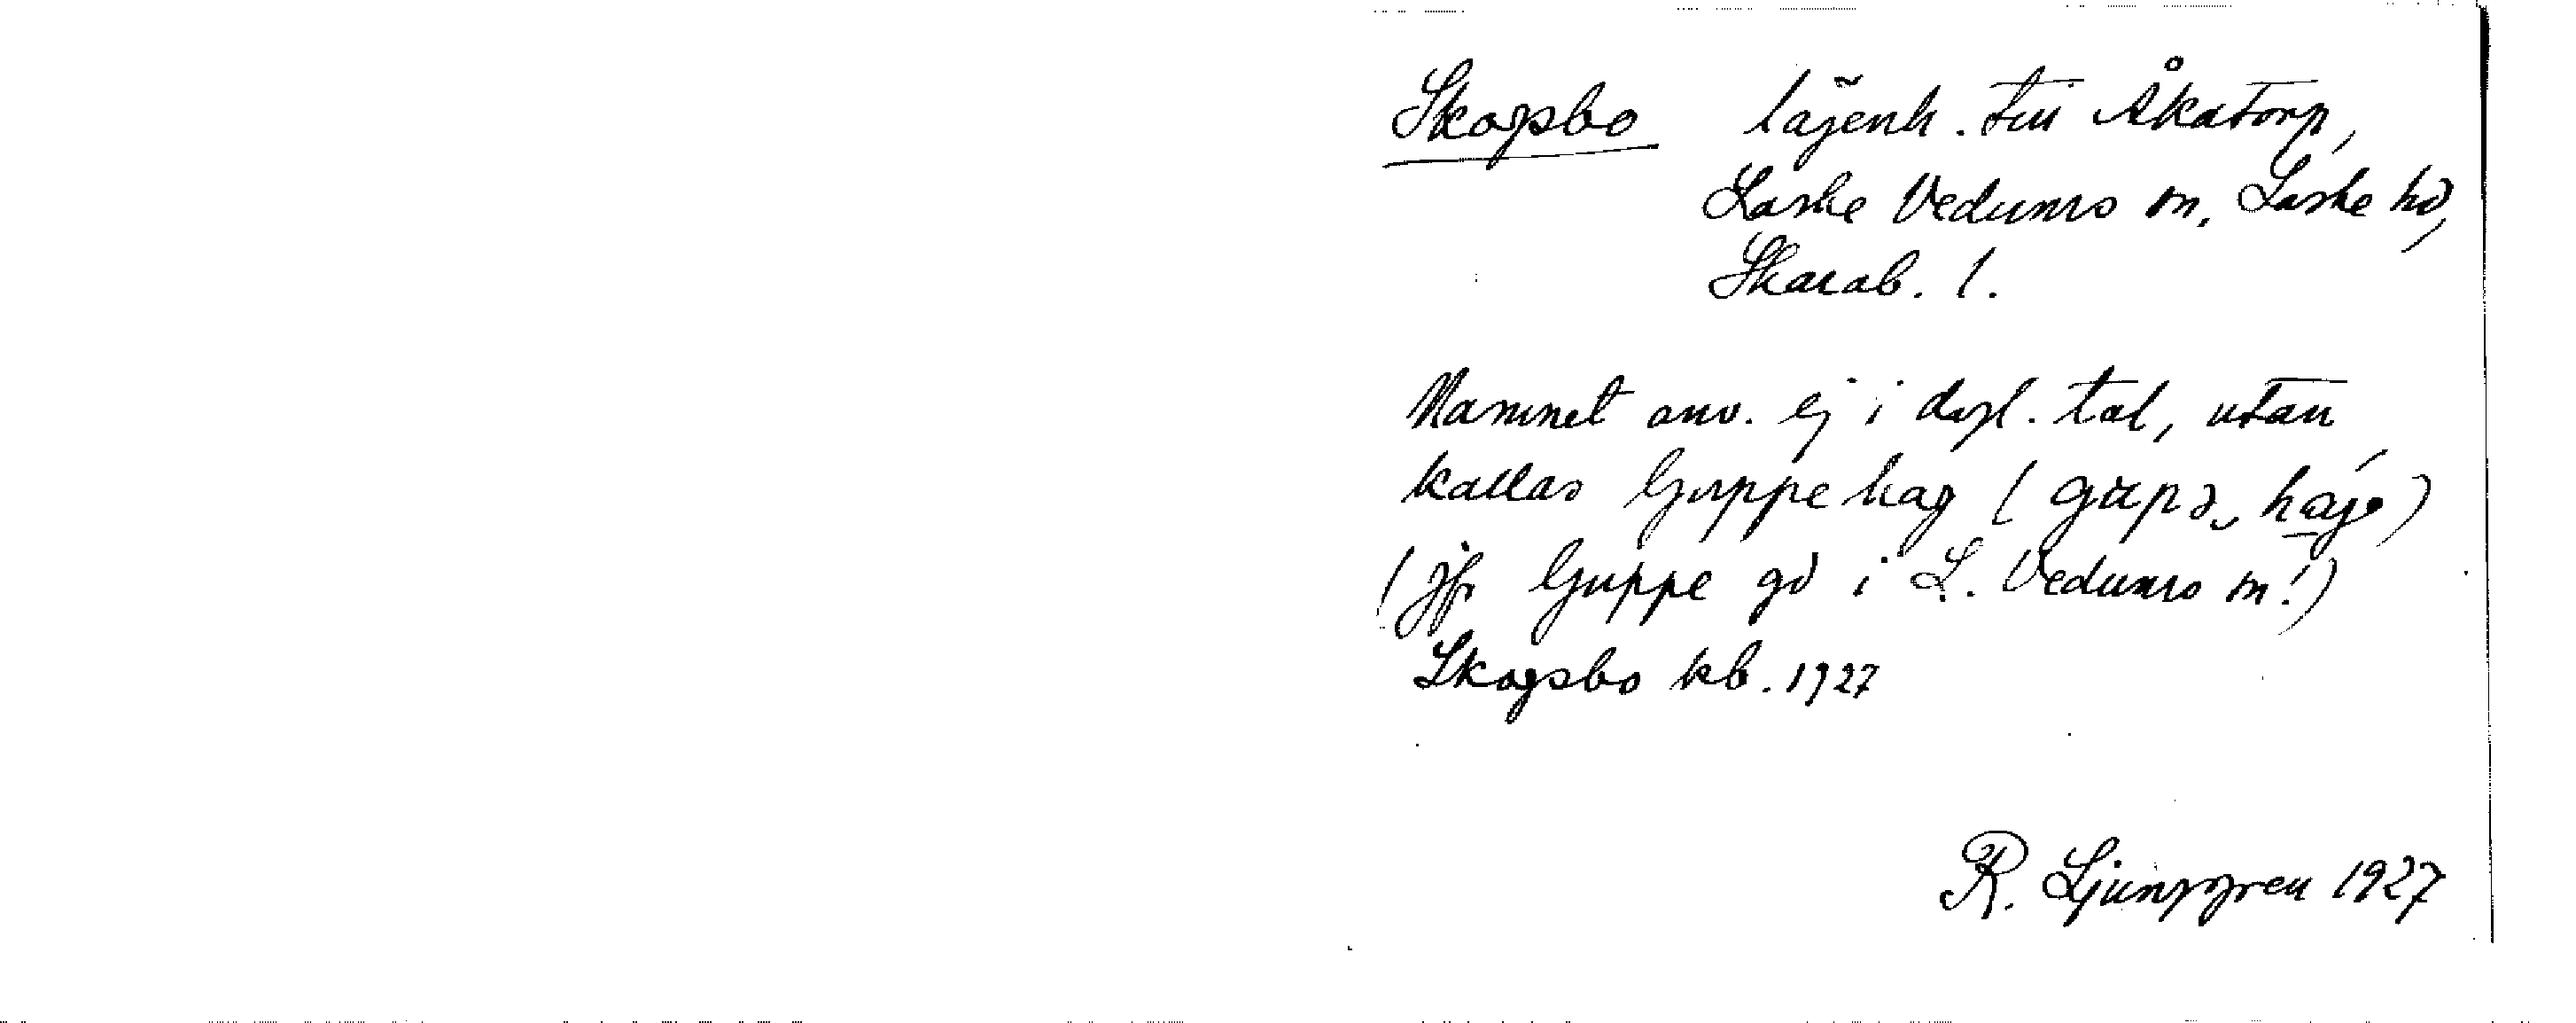 Skogsbo lägenh. till Åkatorp,
Laske Vedums sn, Laske hd,
Skarab. l.
Namnet anv. ej i dagl. tal, utan
kallas Guppehag (
(jfr Guppe gd i L. Vedums sn!)
Skogsbo kb. 1927
R. Ljunggren 1927